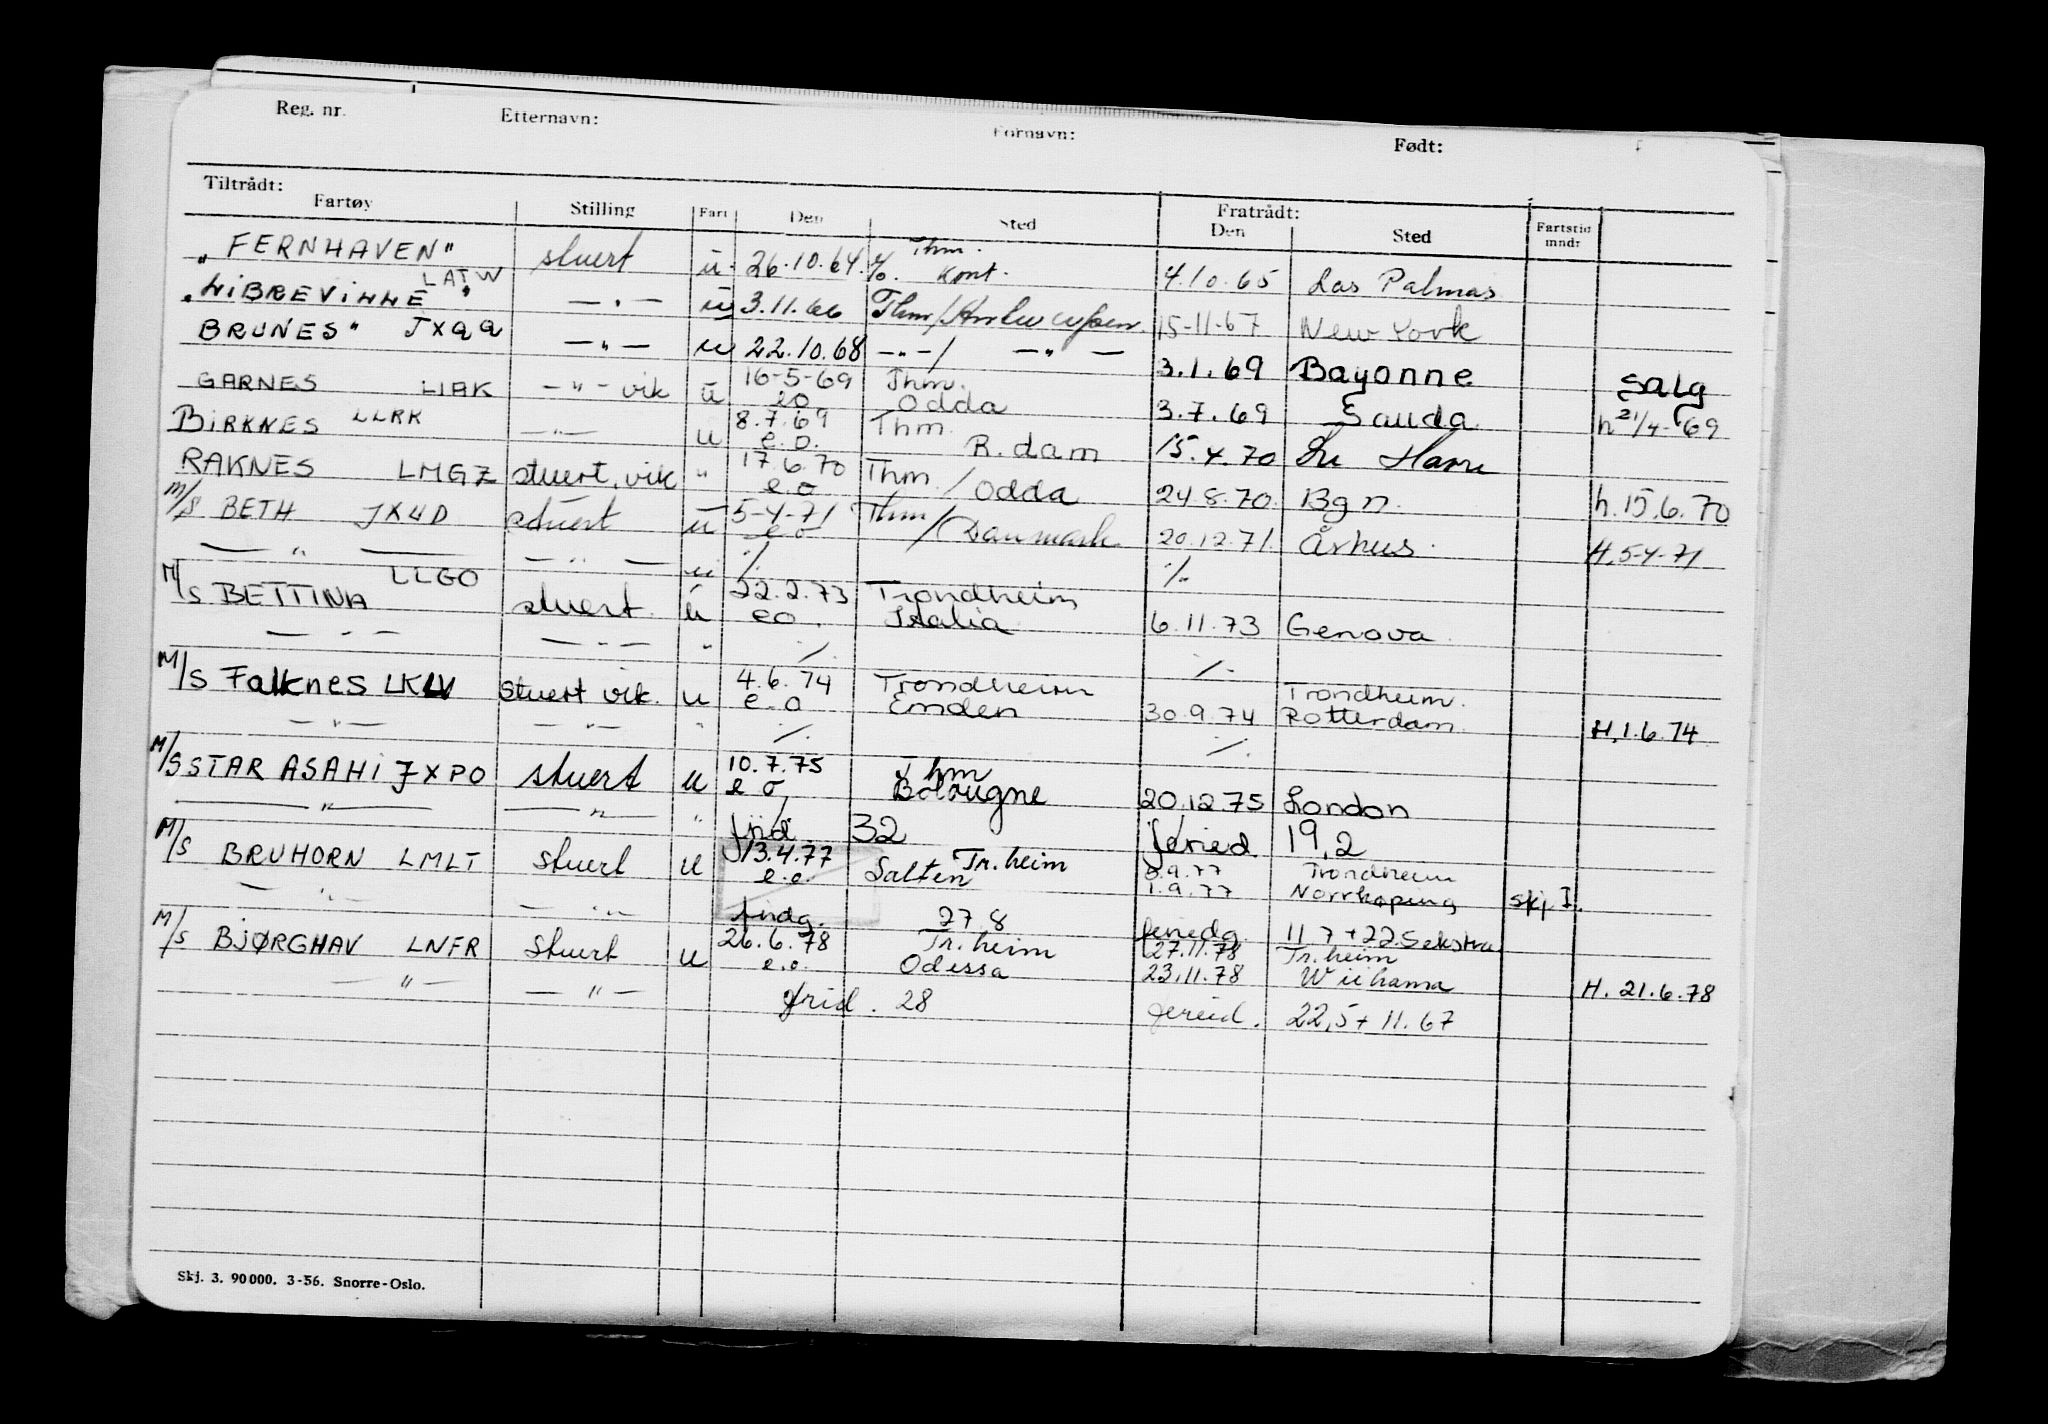 Reg. nr. Etternavn: Fornavn: Født:
Tiltrådt: Fratrådt:
Fartøy Stilling Fart Den Sted Den Sted Fartstid mndr
"FERNHAVEN" stuert u. 26.10.64. Thm. kont. 4.10.65 Las Palmas
LATW
— " — u 3.11.66 Thm/ 15-11-67 New York
BRUNES" JXQQ — " — u 22.10.68 — " — / — " — 3.1.69 Bayonne salg
GARNES LIAK — " — vik u 16-5-69 eo Thm. Odda 3.7.69 Sauda h 21/4-69
BIRKNES LLRK — " — u 8.7.69 e.o. Thm. R.dam 15.4.70
RAKNES LMGZ stuert, vik " 17.6.70 e.o Thm / Odda 24.8.70. Bgn. h.15.6.70
M/S BETH JXUD stuert u 5-4-71 eo Thm/Danmark 20.12.71. Århus. H.5-4-71
— " — — " — u ./. ./.
M/S BETTINA LLGO stuert. u 22.2.73 eo. Trondheim Italia 6.11.73 Genova.
— " — — " — " ./. ./.
M/S Falknes LKLV Stuert vik. u 4.6.74 e.o Trondheim Emden 30.9.74 Trondheim. Rotterdam. H.1.6.74
— " — — " — " ./. ./.
M/S STAR ASAHI JXPO stuert u 10.7.75 e o, Thm Bolougne 20.12 75 London
— " — — " — " frid. 32 feried. 19,2
M/S BRUHORN LMLT stuert u 13.4.77 e.o. Tr.heim Salten 3.9.77 Trondheim
1.9.77 Norrkøping skj I.
— " — — " — fridg. 27,8 feriedg. 11 7 + 22.5 ekstra
M/S BJØRGHAV LNFR stuert u 26.6.78 e.o. Tr.heim Odessa 27.11.78 Tr.heim
23.11.78 H. 21.6.78
— " — — " — frid. 28 feried. 22,5 + 11.67
Skj. 3. 90000. 3-56. Snorre-Oslo.